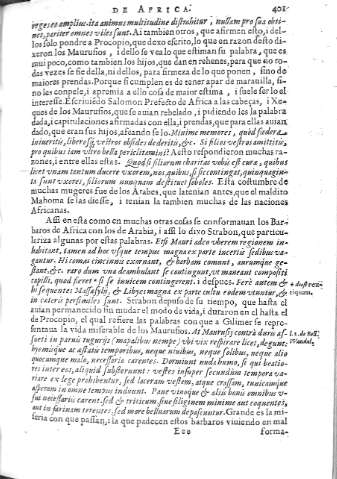 DE AFRICA. 401
urgeses amplius. Ita animus multitudine distrahitur, nullam pro sua obti-
net, pariter omnes viles sunt. Ai tambien otros, que afirmen esto, i del-
los solo pondre a Procopio, que dexo escrito, lo que en razon desto di-
xeron los Maurusios, i dello se vea lo que estiman su palabra, que es
mui poco, como tambien los hijos, que dan en rehenes, para que
das vezes se fie della, ni dellos, para firmeza de lo que ponen, sino de
maiores prendas. Porque si cumplen es de tener por maravilla, si
no les conpele, i apremia a ello cosa de maior estima, i suele ser lo el
interesse. Escriviendo Salomon Prefecto de Africa a las cabeças, i Xe-
ques de los Maurusios, que se avian rebelado, i pidiendo les la palabra
dada, i capitulaciones afirmadas con ella, i prendas, que para ellas avian
dado, que eran sus hijos, afeando se lo. Minime memores, quòd fœdera
inieritis, liberosq; vestros obsides dederitis, &c. Si filios vestros amittitis,
pro quibus iam vltro bella periclitamini? A esto respondieron muchas ra-
zones, i entre ellas estas. Quod si filiorum charitas vobis est cura, quibus
licet vnam tantum ducere vxorem, nos quibus, si sic contingat, quinquagin-
ta sunt vxores, filiorum nunquam destituet soboles. Esta costumbre de
muchas mugeres fue de los Arabes, que la tenian antes, que el maldito
Mahoma se las diesse, i tenian la tambien muchas de las naciones
Africanas.
Assi en esta como en muchas otras cosas se conformavan los Bar-
baros de Africa con los de Arabia, i assi lo dixo Strabòn, que particu-
lariza algunas por estas palabras. Etsi Mauri adeo vberem regionem in-
habitant, tamen ad hoc vsque tempus magna ex parte incertis sedibus va-
gantur. Hi comas cincinnis exornant, & barbam comunt, aurumque ge-
stant, &c. raro dum vna deambulant se contingunt, vt maneant compositi
capilli, quod fieret si se invicem contingerent. i despues. Ferè autem &
hi sequentes Massasyli, & Libyes magna ex parte cultu eodem vtuntur, &
in cæteris persimiles sunt. Strabon depuso de su tiempo, que hasta el
avian permanecido sin mudar el modo de vida, i duraron en el hasta el
de Procopio, el qual refiere las palabras con que a Gilimer se repre-
sentava la vida miserable de los Maurusios. At Maurusij contrà duris as-
sueti in parvis tugurijs (mapalibus nempe) vbi vix respirare licet, degunt:
hyemisque ac æstatis temporibus, neque nivibus, neque solibus, neque alio
quocumque malo, necessario carentes. Dormiunt nuda humo, si qui beatio-
res inter eos, aliquid substernunt: vestes insuper secundum tempora va-
riare ex lege prohibentur, sed laceram vestem, atque crassam, tunicamque
asperam in omne tempus induunt. Pane vinoque & alijs bonis omnibus v-
sui necessarijs carent. sed & triticum, sive siliginem minime aut coquentes,
aut in farinam terentes: sed more belluarum depascuntur. Grande es la mi-
seria con que passan, i la que padecen estos barbaros viviendo en mal
Eee forma-